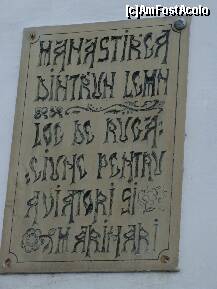 (c)AmFostAcolo
MANASTIREA
DINTRUN LEMN
LOC DE RUGA:
:CIUNE PENTRU
AVIATORI SI
MARINARI